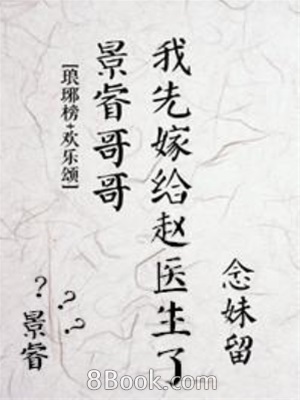 景睿哥哥
我先嫁给赵医生了
[琅琊榜+欢乐颂]
念妹留
？？？
？景睿
8Book.com